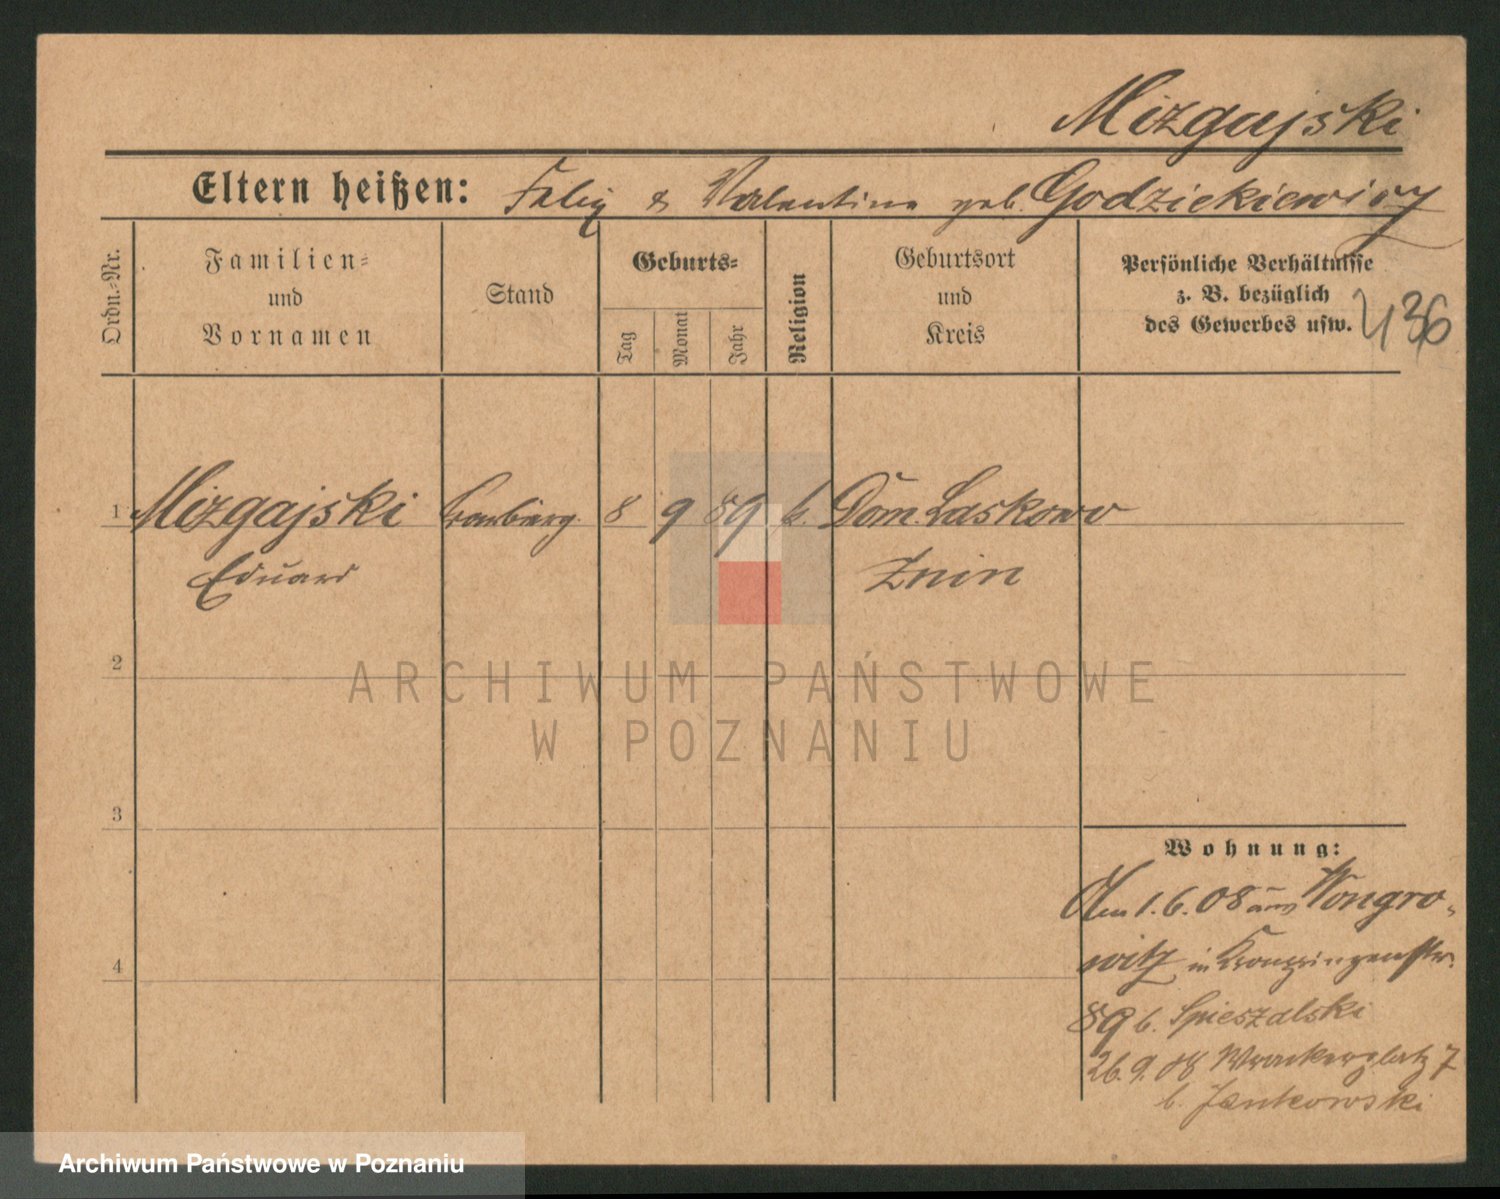 Mizgajski
Eltern heißen: Felix & Valentine geb. Godziekiewicz
Ordn.-Nr.
Familien-
und
Vornamen
Stand
Geburts-
Tag
Monat
Jahr
Religion
Geburtsort
und
Kreis
Persönliche Verhältnisse
z. B. bezüglich
des Gewerbes usw.
436
1 Mizgajski 8 9 89 k. Dom. Laskowo
Eduard Znin
2
3
4
Wohnung:
Am 1.6.08 aus Wongro-
witz in Kronprinzenstr.
89 b. Spieszalski
26.9.08 Wronkerplatz 7
b. Jankowski
ARCHIWUM PAŃSTWOWE
W POZNANIU
Archiwum Państwowe w Poznaniu